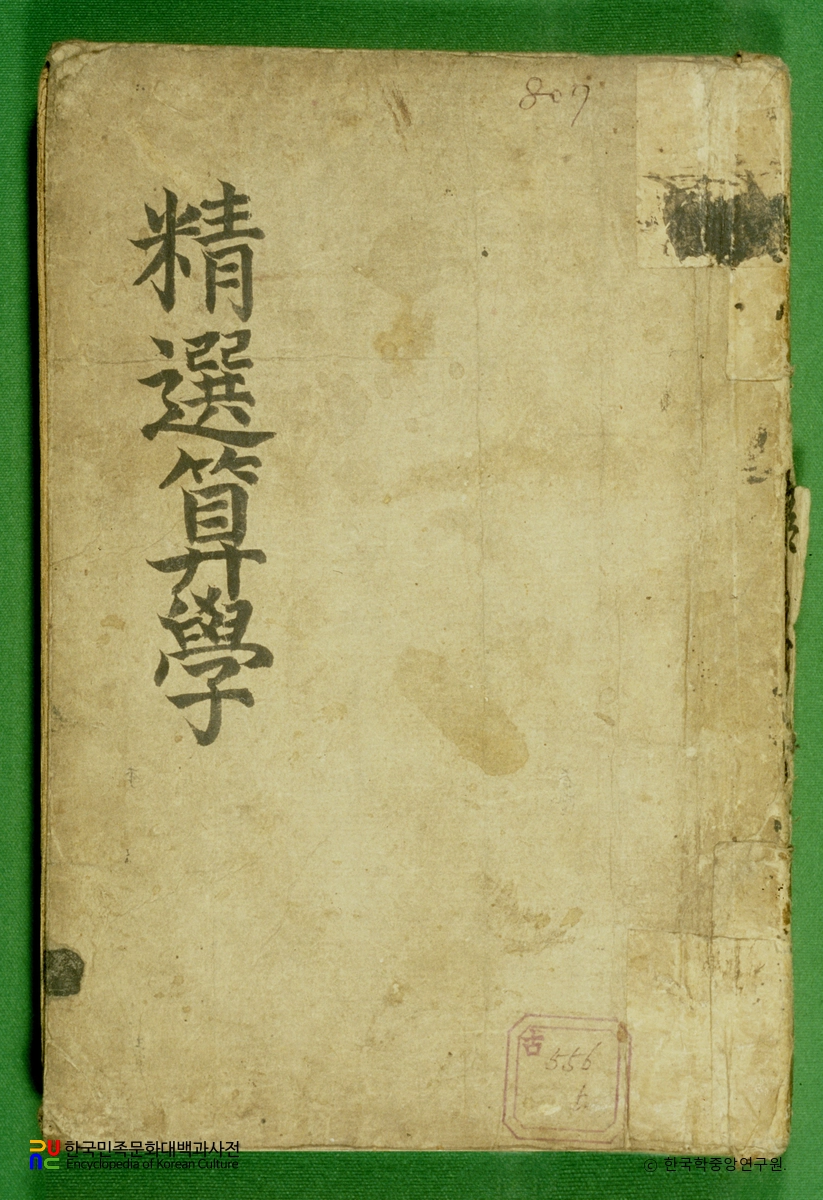 809
精選算學
古
556
한국민족문화대백과사전
Encyclopedia of Korean Culture
© 한국학중앙연구원.